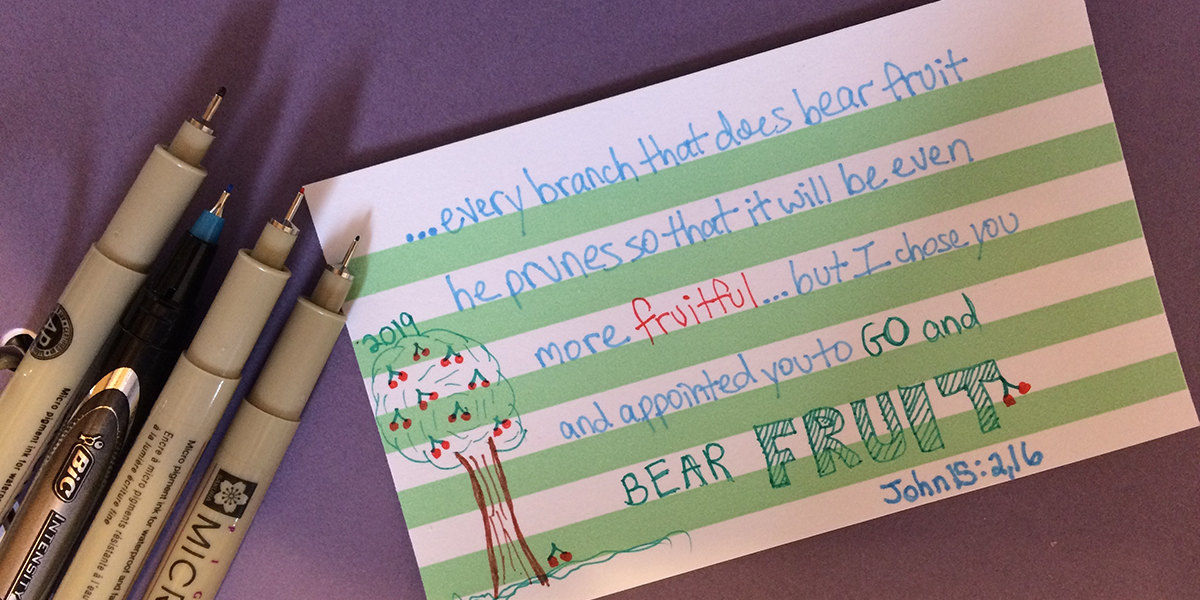 ...every branch that does bear fruit
he prunes so that it will be even
more fruitful...but I chose you
and appointed you to GO and
BEAR FRUIT
John 15:2,16
2019
BiC
INTENSITY
Micro pigment ink for waterproof and
Encre à micro pigments résistante à l'eau
à la lumière écriture fine
Micro pigment ink for
AP